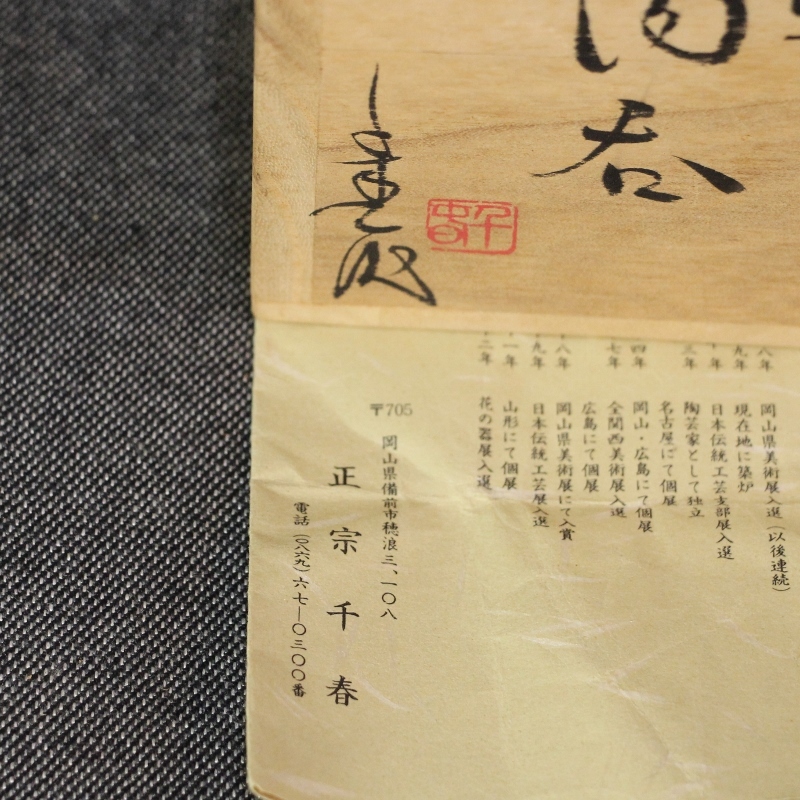 呑
千春
八年 岡山県美術展入選(以後連続)
九年 現在地に築炉
年 日本伝統工芸支部展入選
三年 陶芸家として独立
名古屋にて個展
四年 岡山・広島にて個展
七年 全関西美術展入選
広島にて個展
八年 岡山県美術展にて入賞
九年 日本伝統工芸展入選
一年 山形にて個展
二年 花の器展入選
〒705 岡山県備前市穂浪三、一〇八
正宗千春
電話(〇八六九)六七―〇三〇〇番